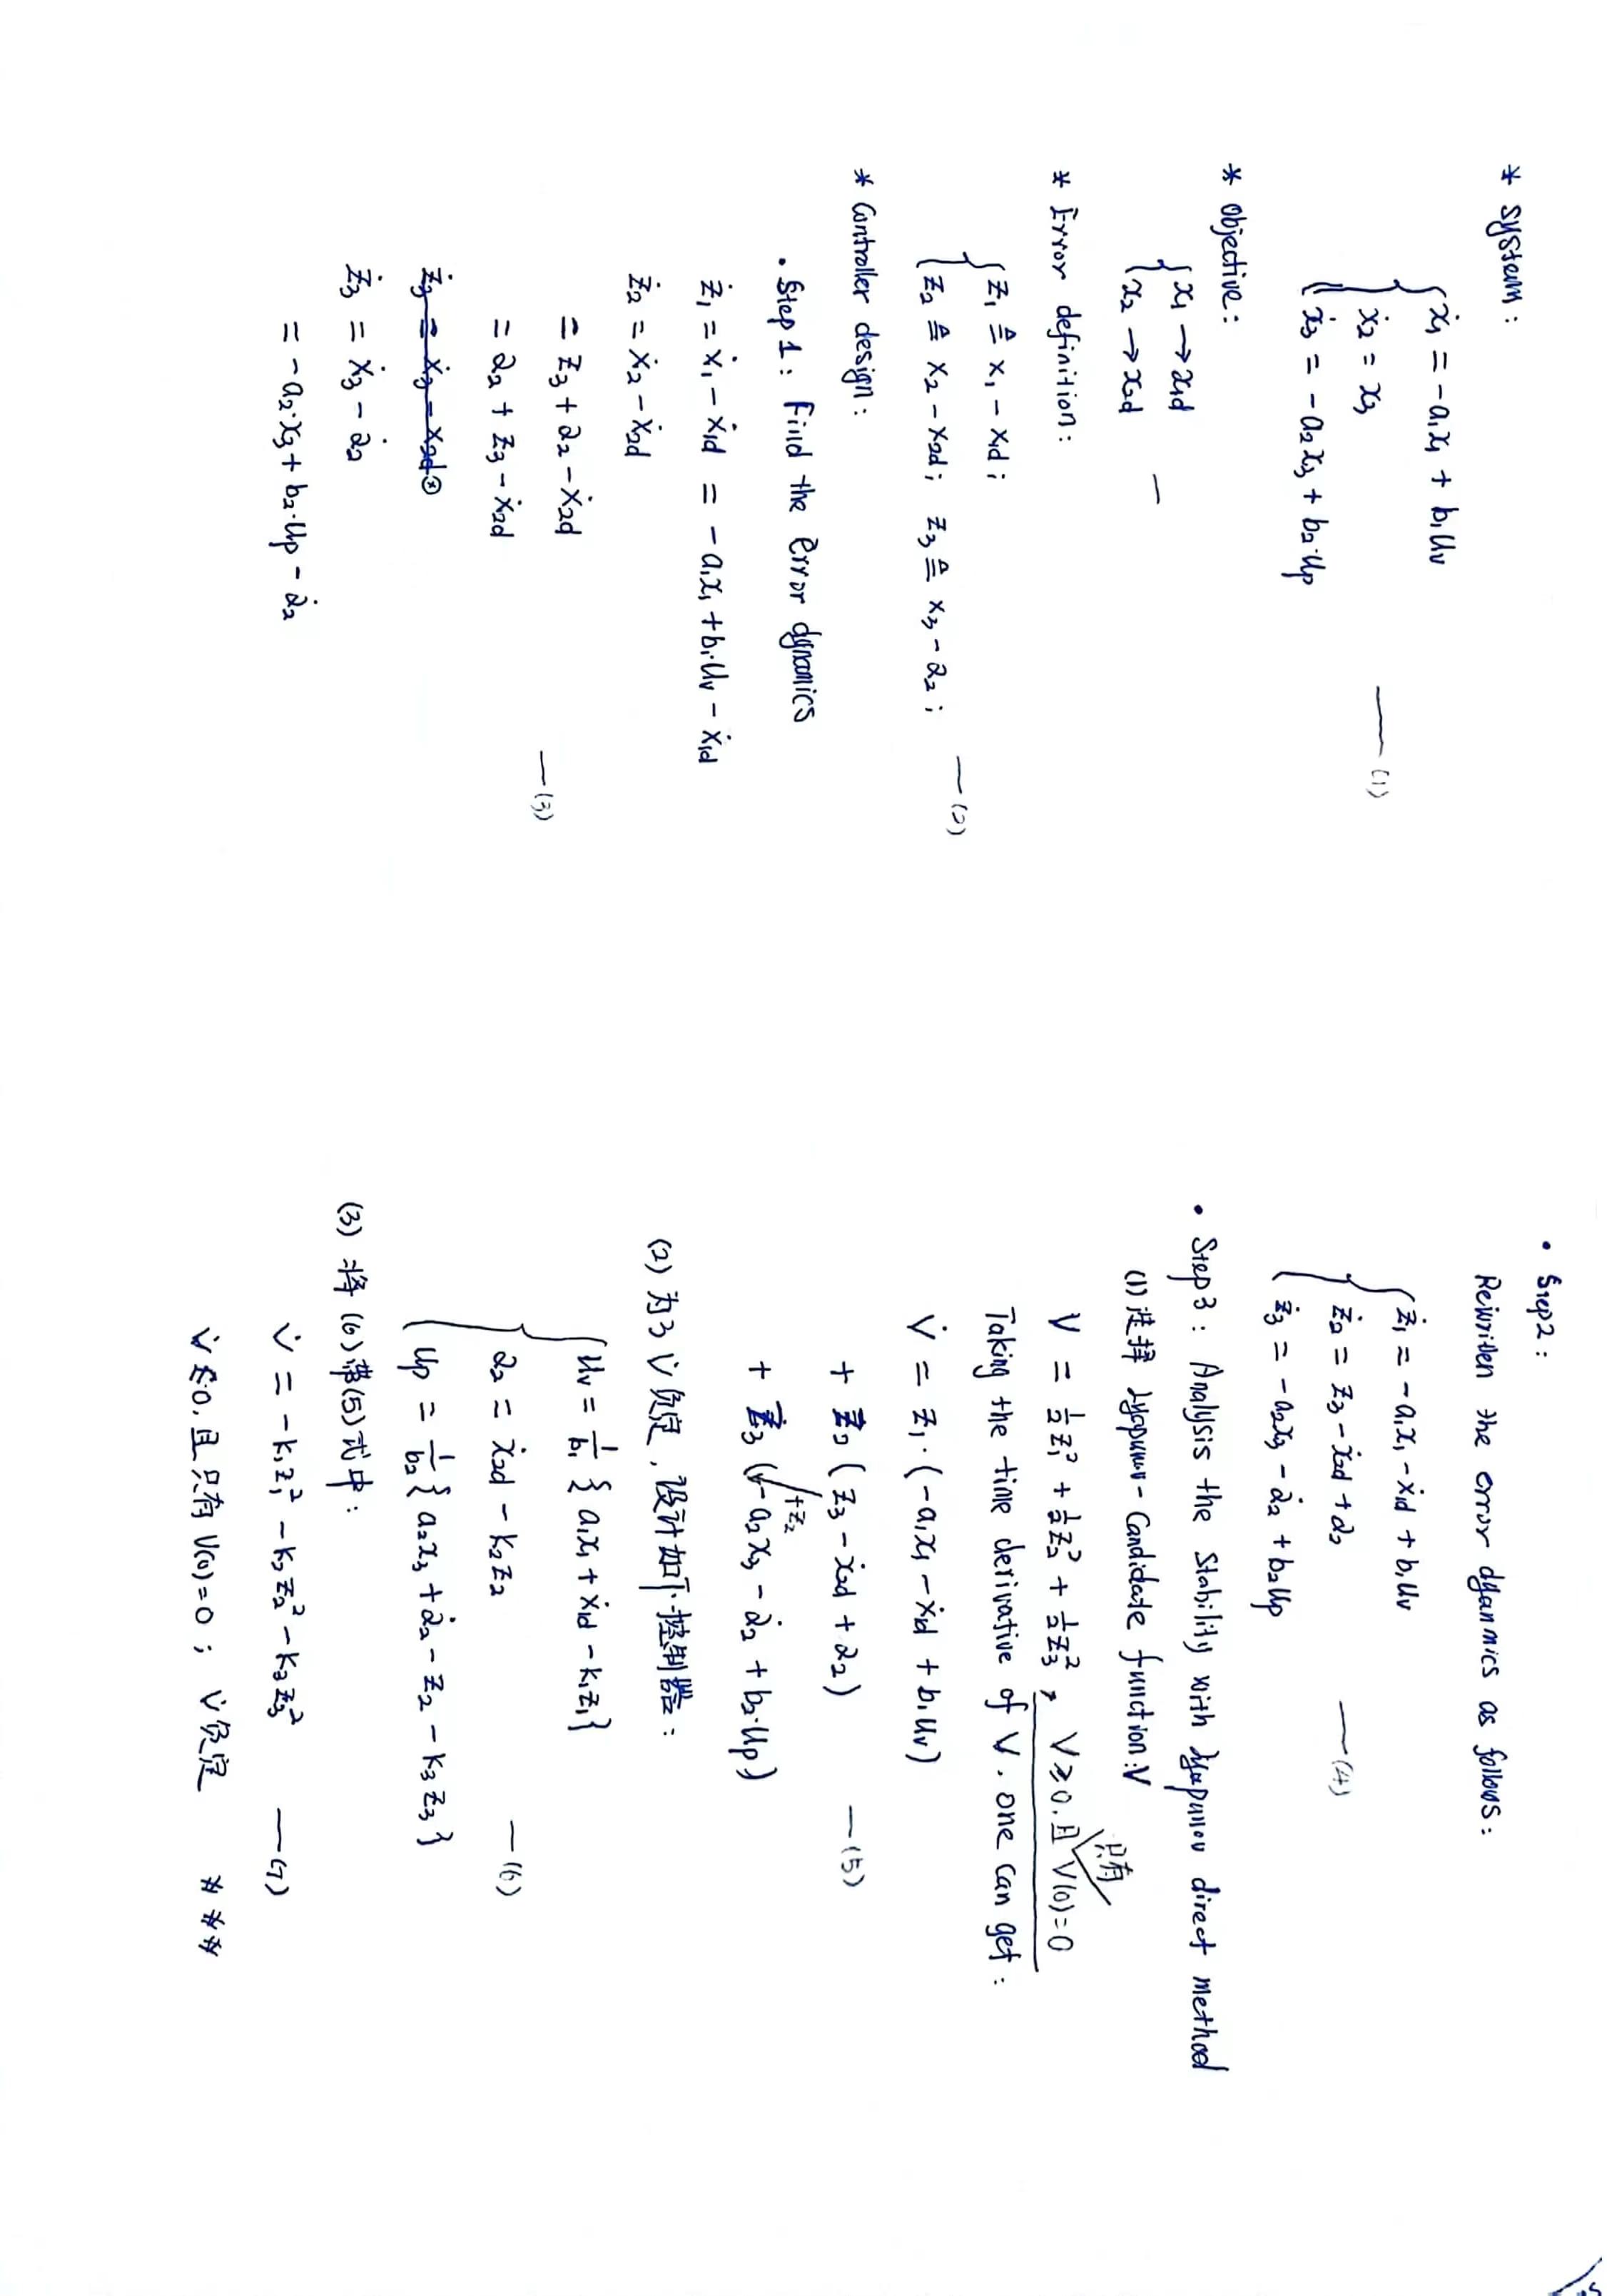 * system:
ẋ₁ = -a₁x₁ + b₁Uv
ẋ₂ = x₃ —(1)
ẋ₃ = -a₂x₃ + b₂·Up
* Objective:
x₁ → x₁d
x₂ → x₂d —
* Error definition:
z₁ ≜ x₁ - x₁d;
z₂ ≜ x₂ - x₂d; z₃ ≜ x₃ - α₂; —(2)
* Controller design:
• Step 1: Find the Error dynamics
ż₁ = ẋ₁ - ẋ₁d = -a₁x₁ + b₁·Uv - ẋ₁d
ż₂ = ẋ₂ - ẋ₂d
= z₃ + α₂ - ẋ₂d
—(3)
= α₂ + z₃ - ẋ₂d
ż₃ = ẋ₃ - x₂d
ż₃ = ẋ₃ - α̇₂
= -a₂·x₃ + b₂·Up - α̇₂
• Step2:
Rewriten the error dyanmics as follows:
ż₁ = -a₁x₁ - ẋ₁d + b₁Uv
ż₂ = z₃ - ẋ₂d + α₂ —(4)
ż₃ = -a₂x₃ - α̇₂ + b₂Up
• Step3: Analysis the Stability with Lyapunov direct method
(1) 选择 Lyapunov - Candidate function: V
只有
V = ½z₁² + ½z₂² + ½z₃², V≥0. 且 V(0)=0
Taking the time derivative of V. one can get:
V̇ = z₁·(-a₁x₁ - ẋ₁d + b₁Uv)
+ z₂ (z₃ - ẋ₂d + α₂) —(5)
+z₂
+ z₃ (-a₂x₃ - α̇₂ + b₂·Up)
(2) 为了 V̇ 负定, 设计如下控制器:
Uv = 1/b₁ { a₁x₁ + ẋ₁d - k₁z₁}
α₂ = ẋ₂d - k₂z₂ —(6)
Up = 1/b₂ { a₂x₃ + α̇₂ - z₂ - k₃z₃ }
(3) 将 (6) 带(5) 式中:
V̇ = -k₁z₁² - k₂z₂² - k₃z₃² —(7)
V̇ ≤ 0. 且 只有 V(0) = 0 ; V̇ 负定 ***